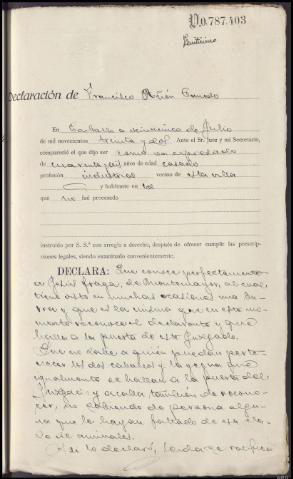 D.0.787.403
Declaración de Francisco
En Carballo a veinticinco de Julio
de mil novecientos treinta y dos. Ante el Sr. Juez y mi Secretario,
compareció el que dijo ser como va expresado
de cuarenta y seis años de edad casado
profesión industrial vecino de esta villa
y habitante en id
que no fué procesado
instruído por S. S.ª con arreglo a derecho, después de ofrecer cumplir las prescrip-
ciones legales, siendo examinado convenientemente.
DECLARA: Que conoce perfectamente
a José Fraga, de Montemayor, al cual
tiene visto en muchas ocasiones una bu-
rra y que es la misma que en este mo-
mento reconoce el declarante y que se
halla a la puerta de este Juzgado.
Que no sabe a quien puedan perte-
necer los dos caballos y la yegua que
igualmente se hallan a la puerta del
Juzgado y acaba también de recono-
cer, no sabiendo de persona algu-
na que le hayan faltado de
de animales.
Así lo declaró, leída se ratifica